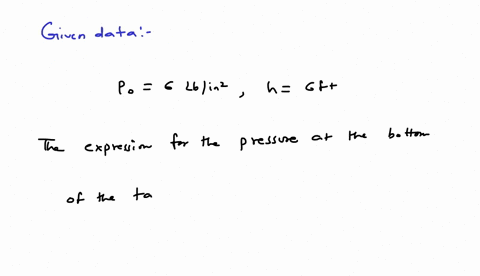 Given data:-
P₀ = 6 Lb/in², h = 6ft
The expression for the pressure at the bottom
of the ta